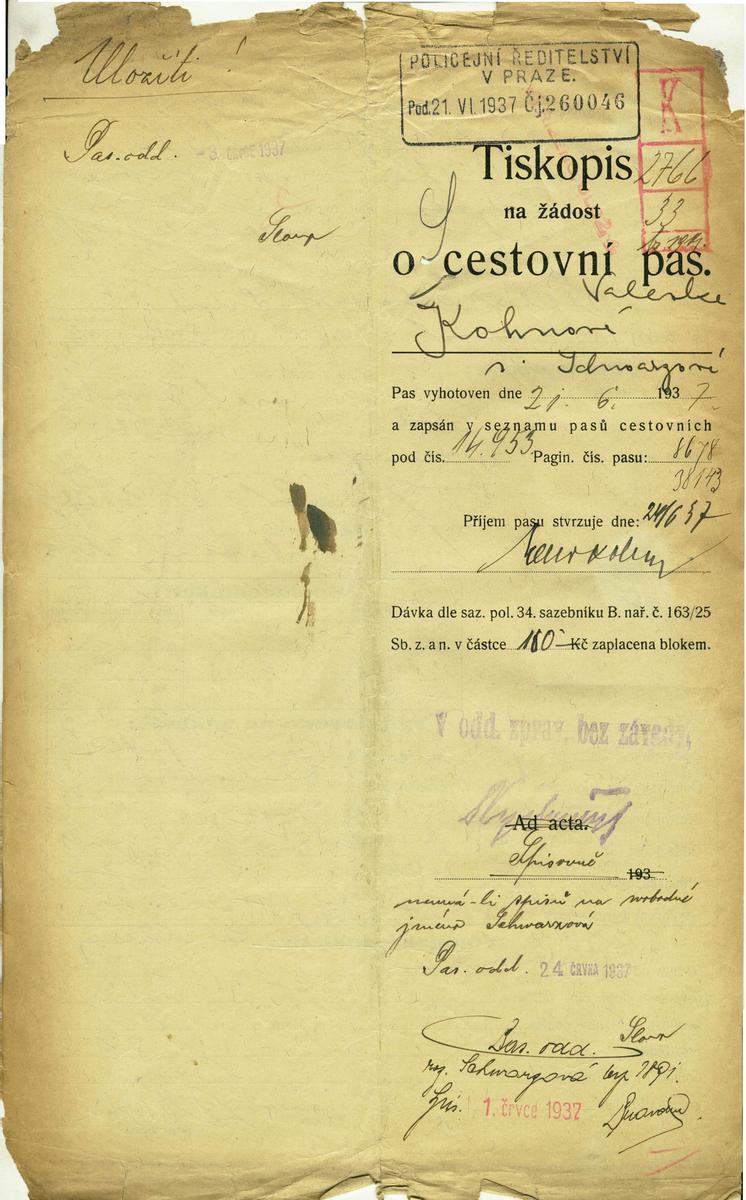 Uložiti!
Pas. odd. - 3. ČERVCE 1937
POLICEJNÍ ŘEDITELSTVÍ
V PRAZE.
Pod. 21. VI. 1937 Čj. 260046
K
2766
33
Tiskopis
na žádost
o cestovní pas.
Valeske
Kohnové
r. Schwarzové
Pas vyhotoven dne 21. 6. 1937
a zapsán v seznamu pasů cestovních
pod čís. 14.953. Pagin. čís. pasu: 8678
38143
Příjem pasu stvrzuje dne: 24/6 37
Dávka dle saz. pol. 34. sazebníku B. nař. č. 163/25
Sb. z. a n. v částce 100 Kč zaplacena blokem.
V odd. zpráv bez závady.
Ad acta.
Spisovně 193
nemá-li spisů na svobodné
jméno Schwarzová
Pas. odd. 24 ČRVNA 1937
Pas. odd.
roz. Schwarzová
1. črvce 1937